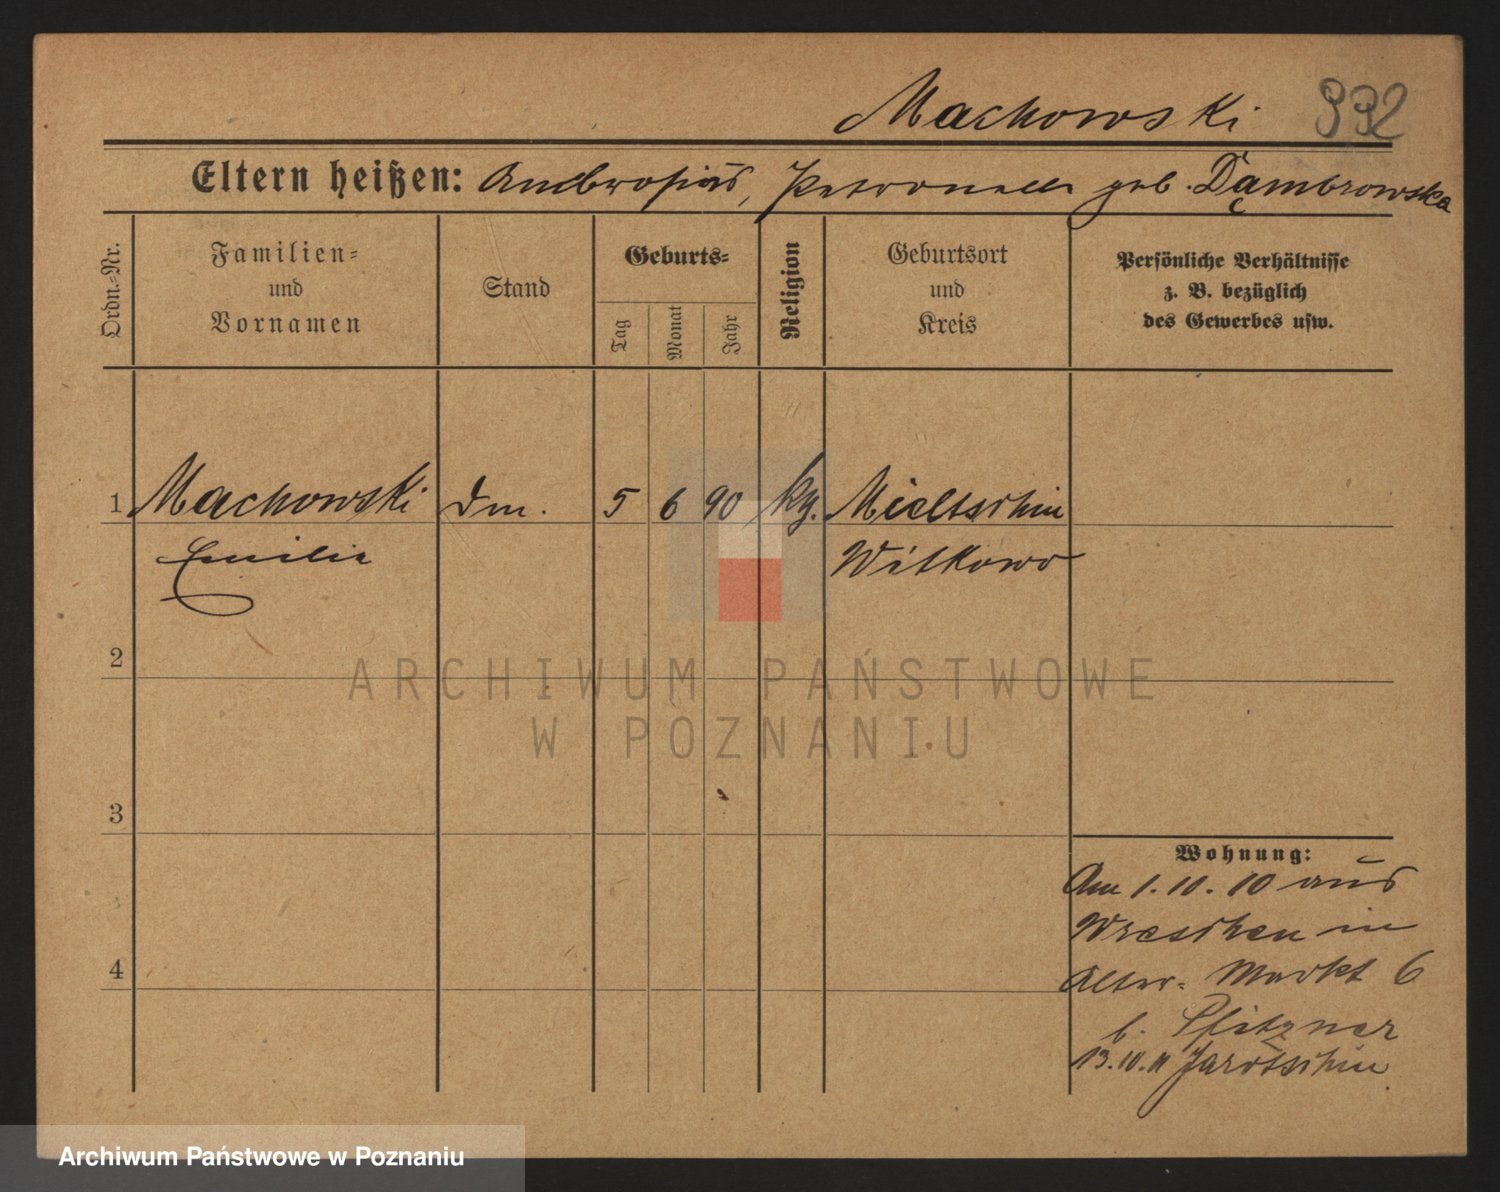 Machowski 992
Eltern heißen: Ambrosius, Petronella geb. Dąmbrowska
Ordn.-Nr.
Familien-
und
Vornamen
Stand
Geburts-
Tag
Monat
Jahr
Religion
Geburtsort
und
Kreis
Persönliche Verhältnisse
z. B. bezüglich
des Gewerbes usw.
1 Machowski 5 6 90 Mieltschin
Emilie Witkowo
2
ARCHIWUM PAŃSTWOWE
W POZNANIU
3
Wohnung:
Am 1.10.10 aus
Wreschen in
Alter-Markt 6
b. Pfitzner
4
13.10.11 Jarotschin
Archiwum Państwowe w Poznaniu